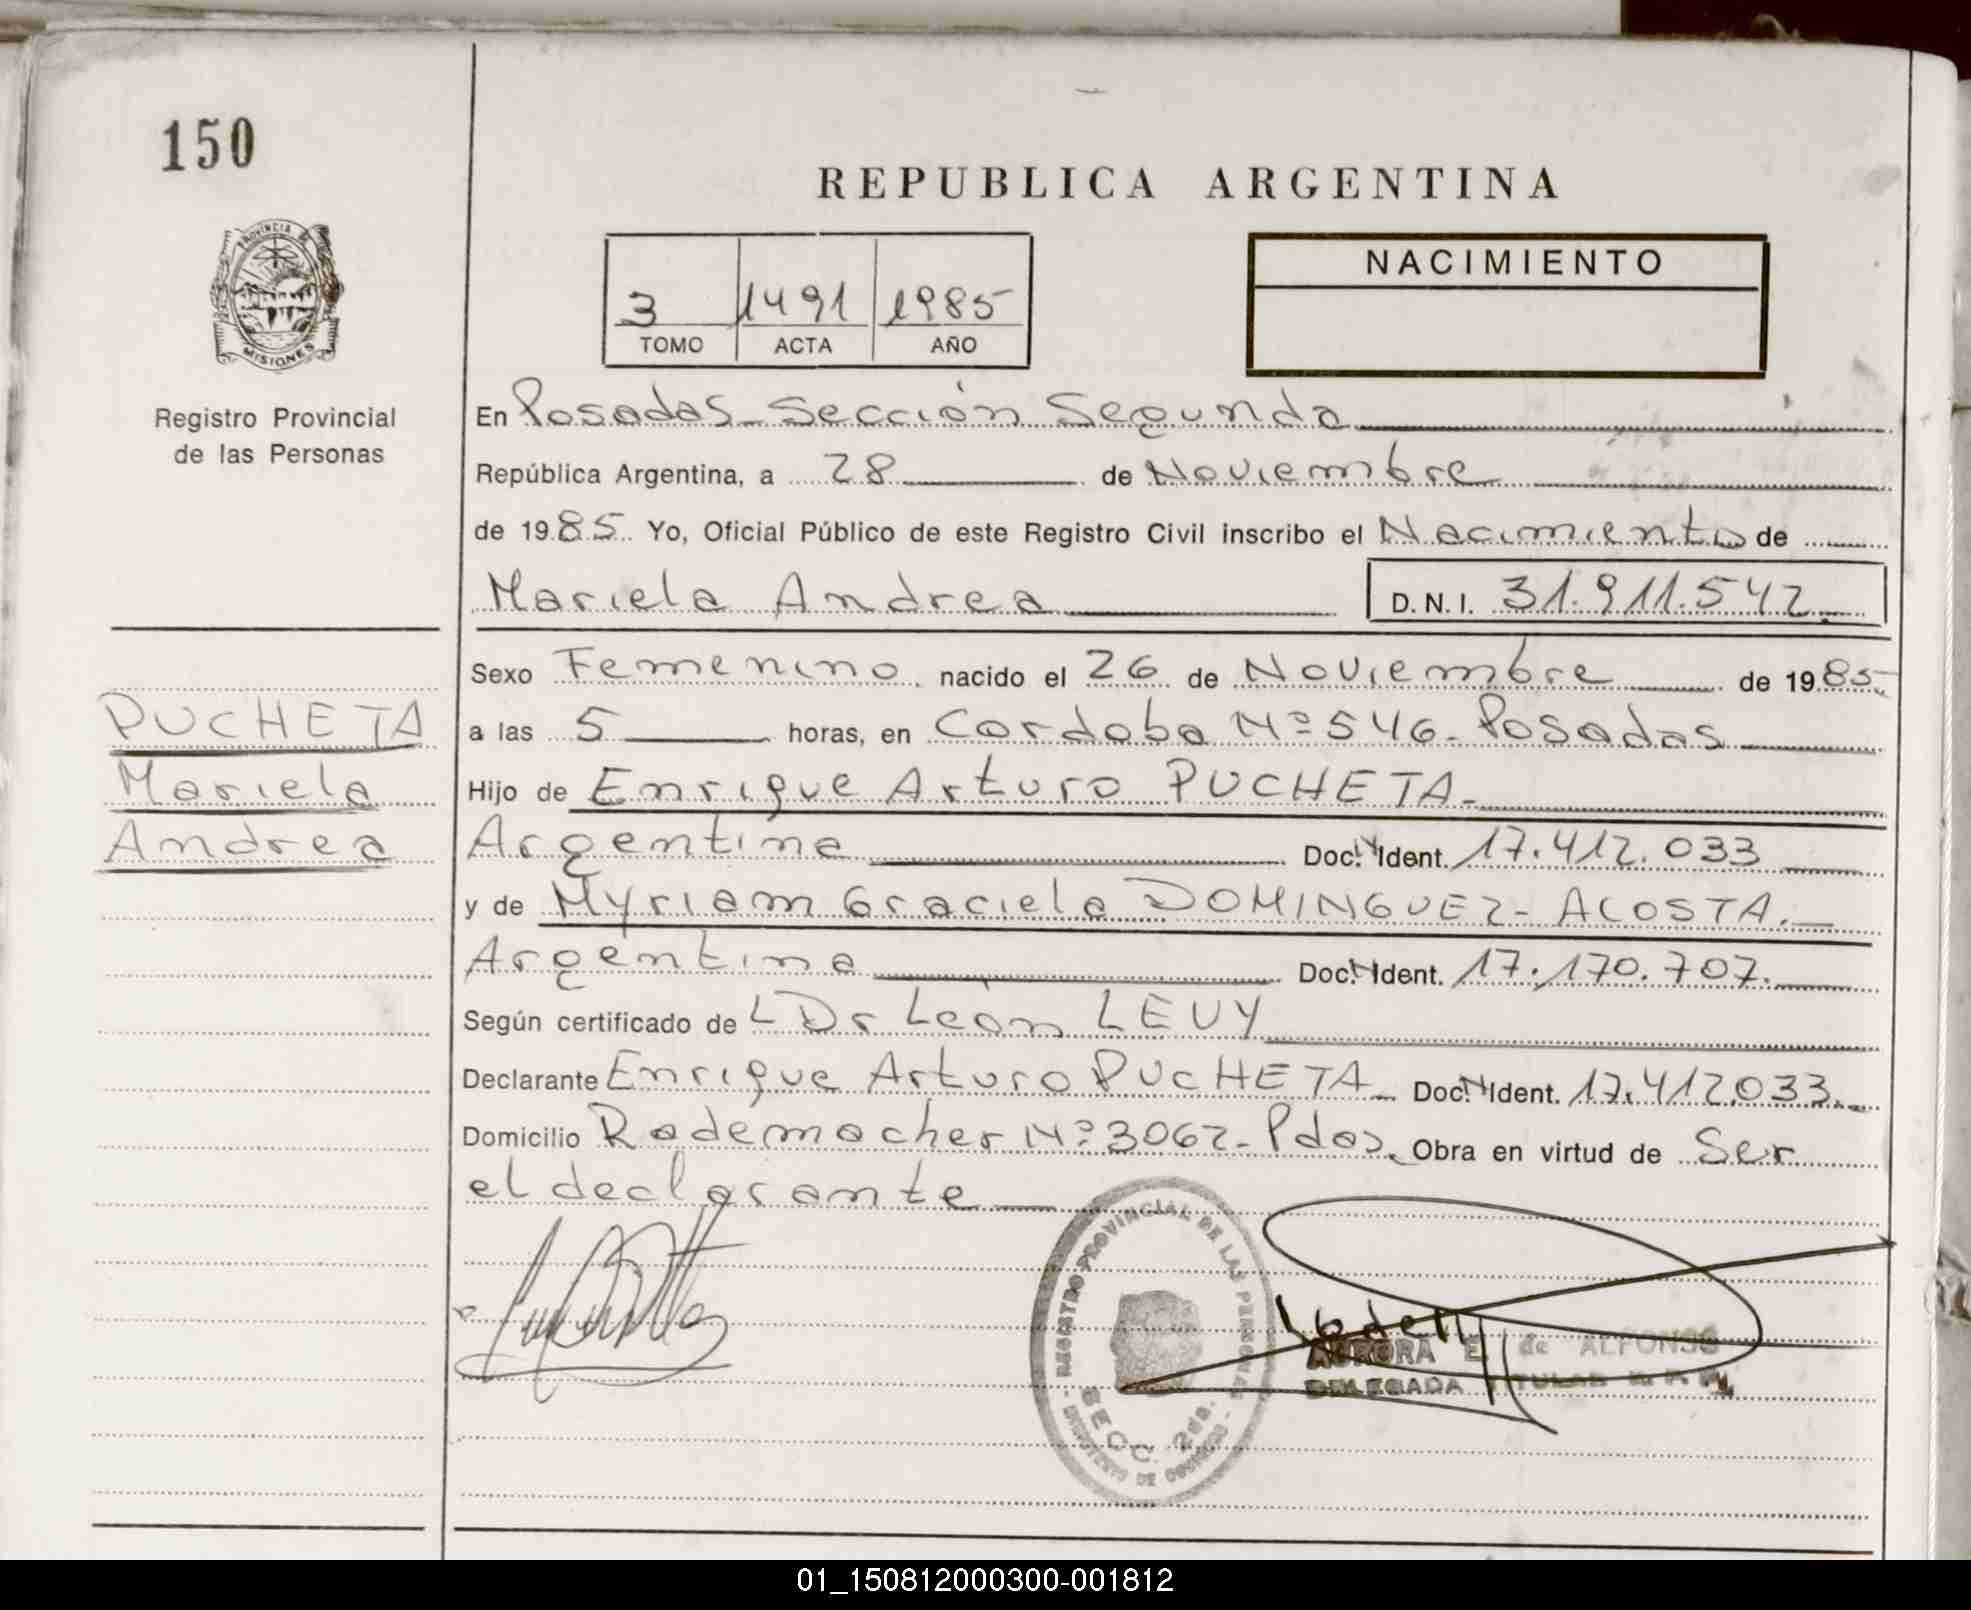 150
REPUBLICA ARGENTINA
PROVINCIA DE
MISIONES
Registro Provincial
de las Personas
3 1491 1985
TOMO ACTA AÑO
NACIMIENTO
En Posadas - Sección Segunda
República Argentina, a 28 de Noviembre
de 1985 Yo, Oficial Público de este Registro Civil inscribo el Nacimiento de
Mariela Andrea D.N.I. 31.911.542
Sexo Femenino nacido el 26 de Noviembre de 1985
PUCHETA
Mariela
Andrea
a las 5 horas, en Cordoba Nº 546 - Posadas
Hijo de Enrique Arturo PUCHETA -
Argentina Doc. N Ident. 17.412.033
y de Myriam Graciela DOMINGUEZ - ACOSTA.
Argentina Doc. N Ident. 17.170.707.
Según certificado de L Dr León LEVY
Declarante Enrique Arturo PUCHETA - Doc. N Ident. 17.412.033.
Domicilio Rademacher Nº 3062 - Pdas. Obra en virtud de Ser
el declarante
REGISTRO PROVINCIAL DE LAS PERSONAS
SECC. 2da.
AURORA E. de ALFONSO
DELEGADA TITULAR R. P. P.
01_150812000300-001812